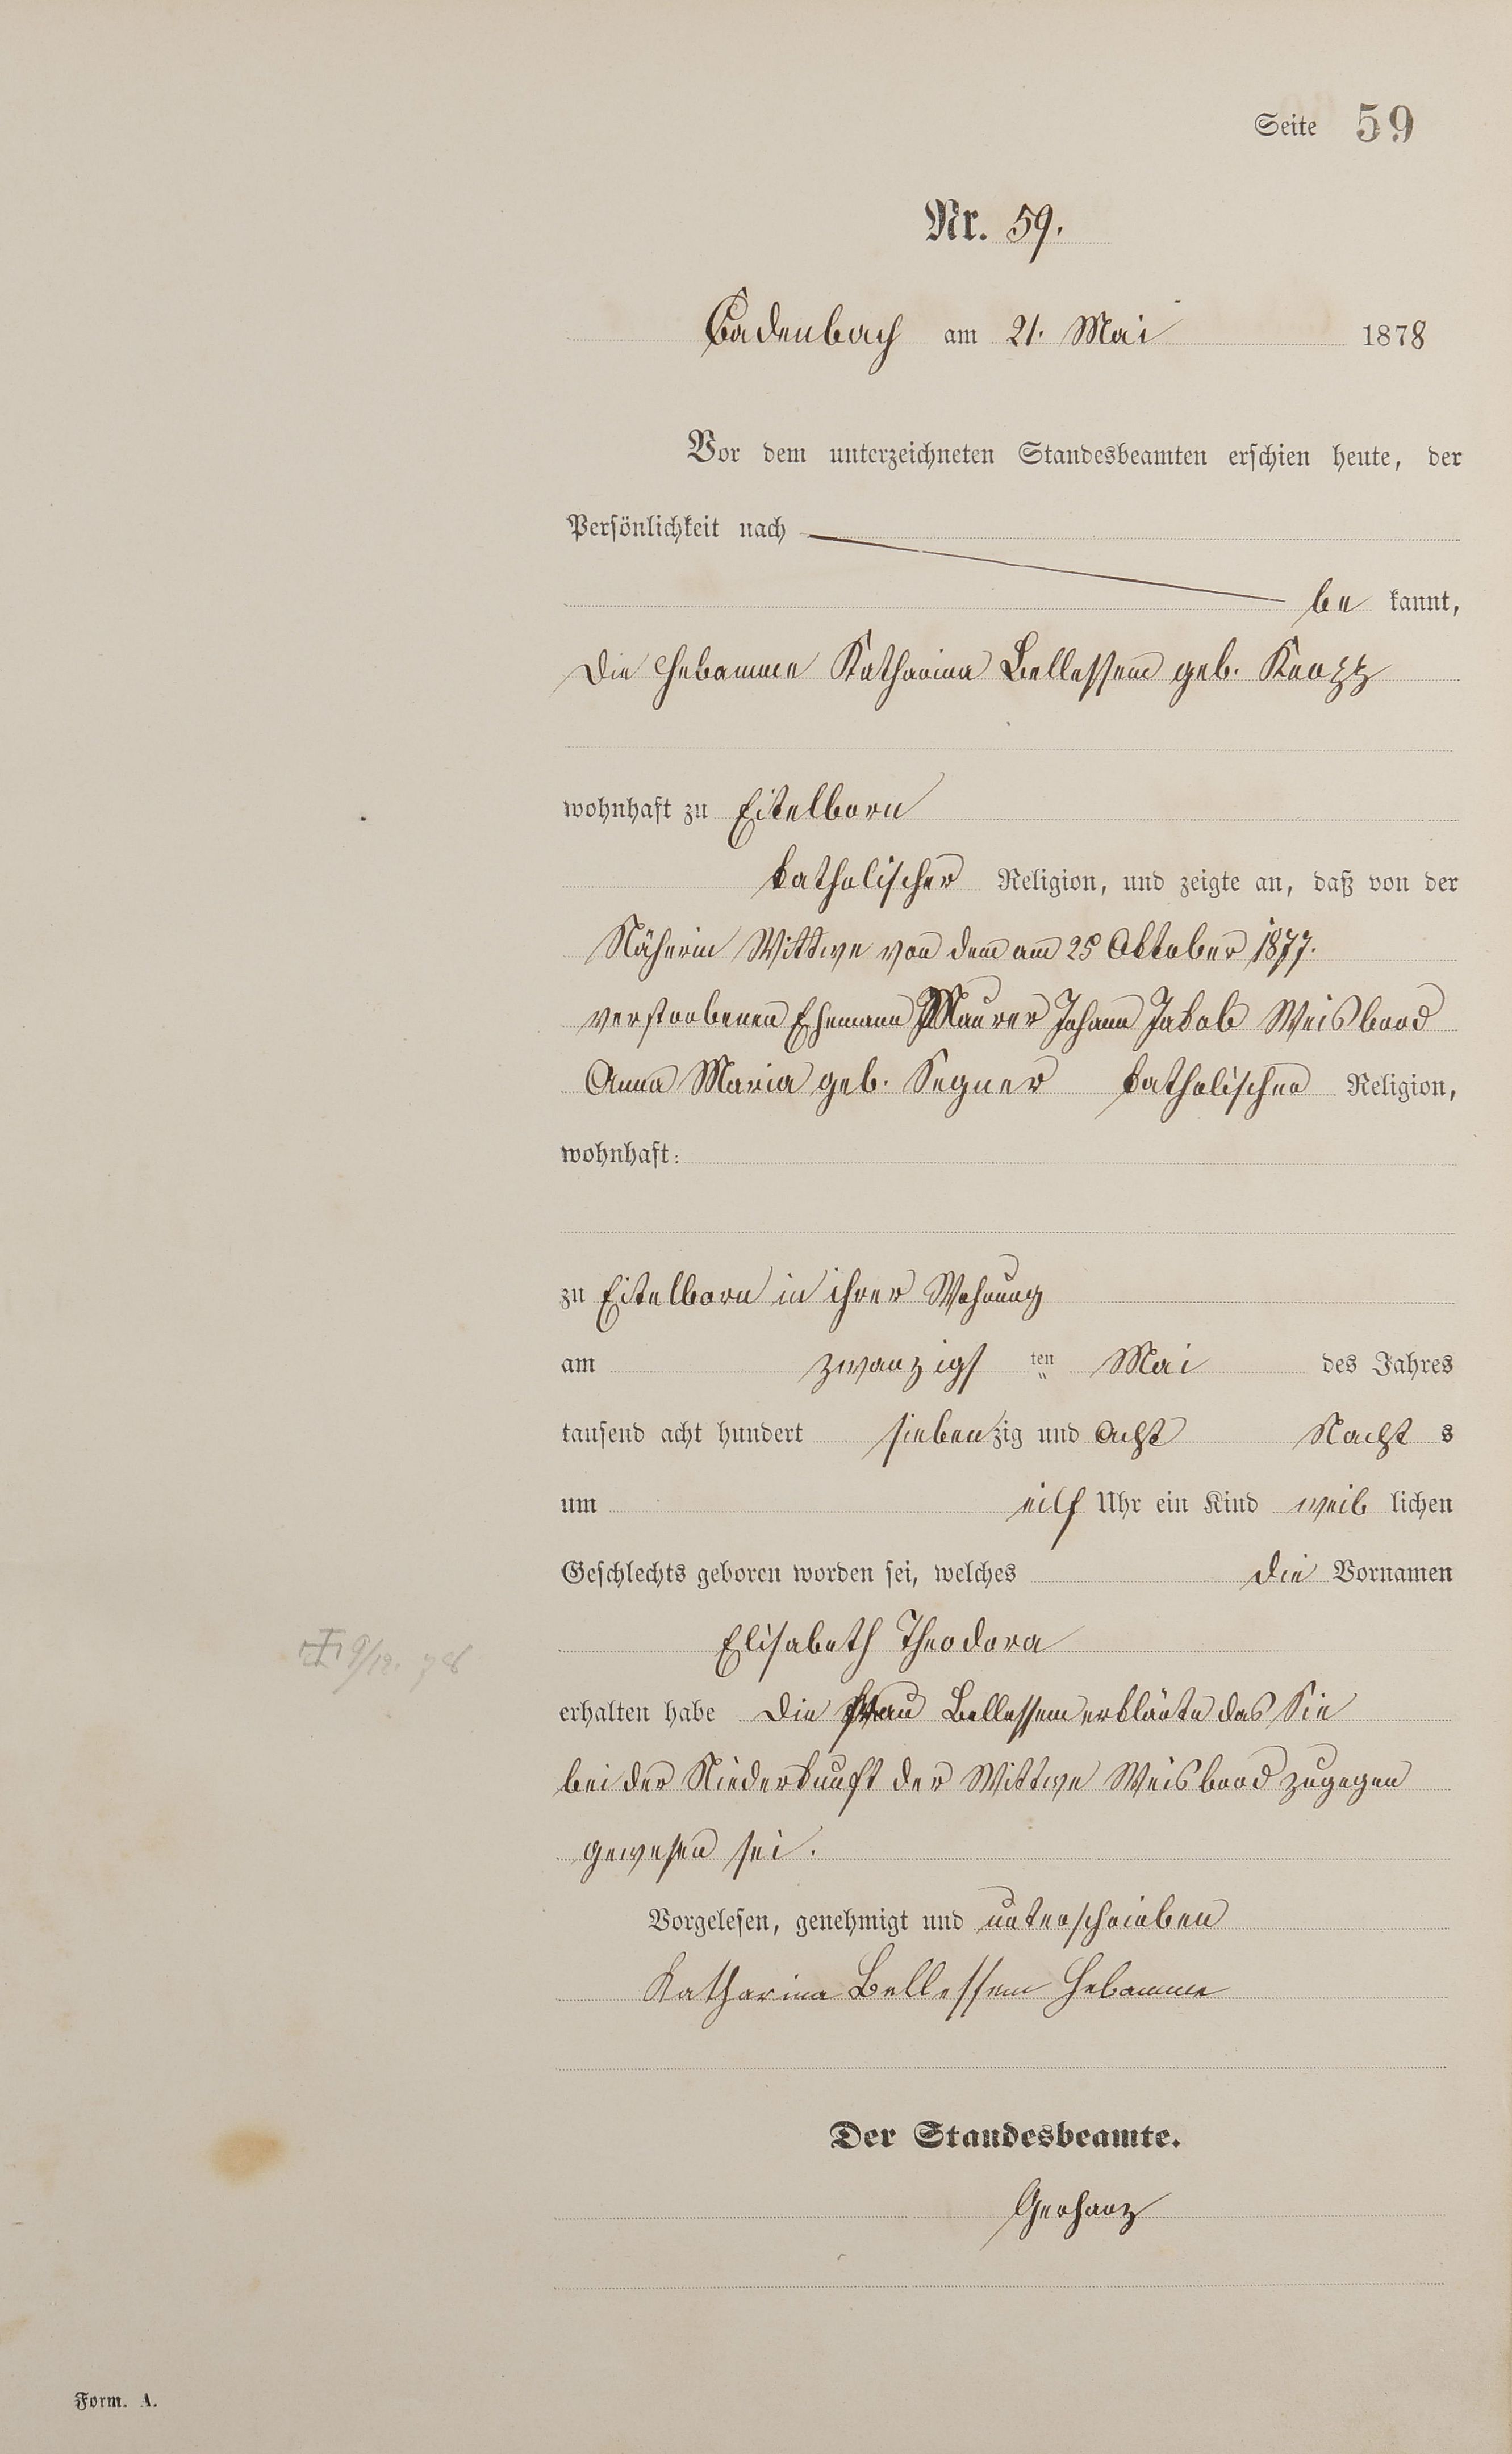 Seite 59
Nr. 59.
Cadenbach am 21. Mai 1878
Vor dem unterzeichneten Standesbeamten erschien heute, der
Persönlichkeit nach
be kannt,
die Hebamme Katharina Bellessem geb. Knopp
wohnhaft zu Eitelborn
katholischer Religion, und zeigte an, daß von der
Näherin Wittwe von dem am 25 Oktober 1877.
verstorbenen Ehemann Maurer Johann Jakob Weisbrod
Anna Maria geb. Segner katholischer Religion,
wohnhaft:
zu Eitelborn in ihrer Wohnung
am zwanzigs ten Mai des Jahres
tausend acht hundert siebenzig und Acht Nacht s
um eilf Uhr ein Kind weib lichen
Geschlechts geboren worden sei, welches die Vornamen
Elisabeth Theodora
erhalten habe Die Frau Bellessem erklärte das Sie
bei der Niederkunft der Wittwe Weisbrod zugegen
gewesen sei.
Vorgelesen, genehmigt und unterschrieben
Katharina Bellessem Hebamme
Der Standesbeamte.
Gerharz
Form. A.